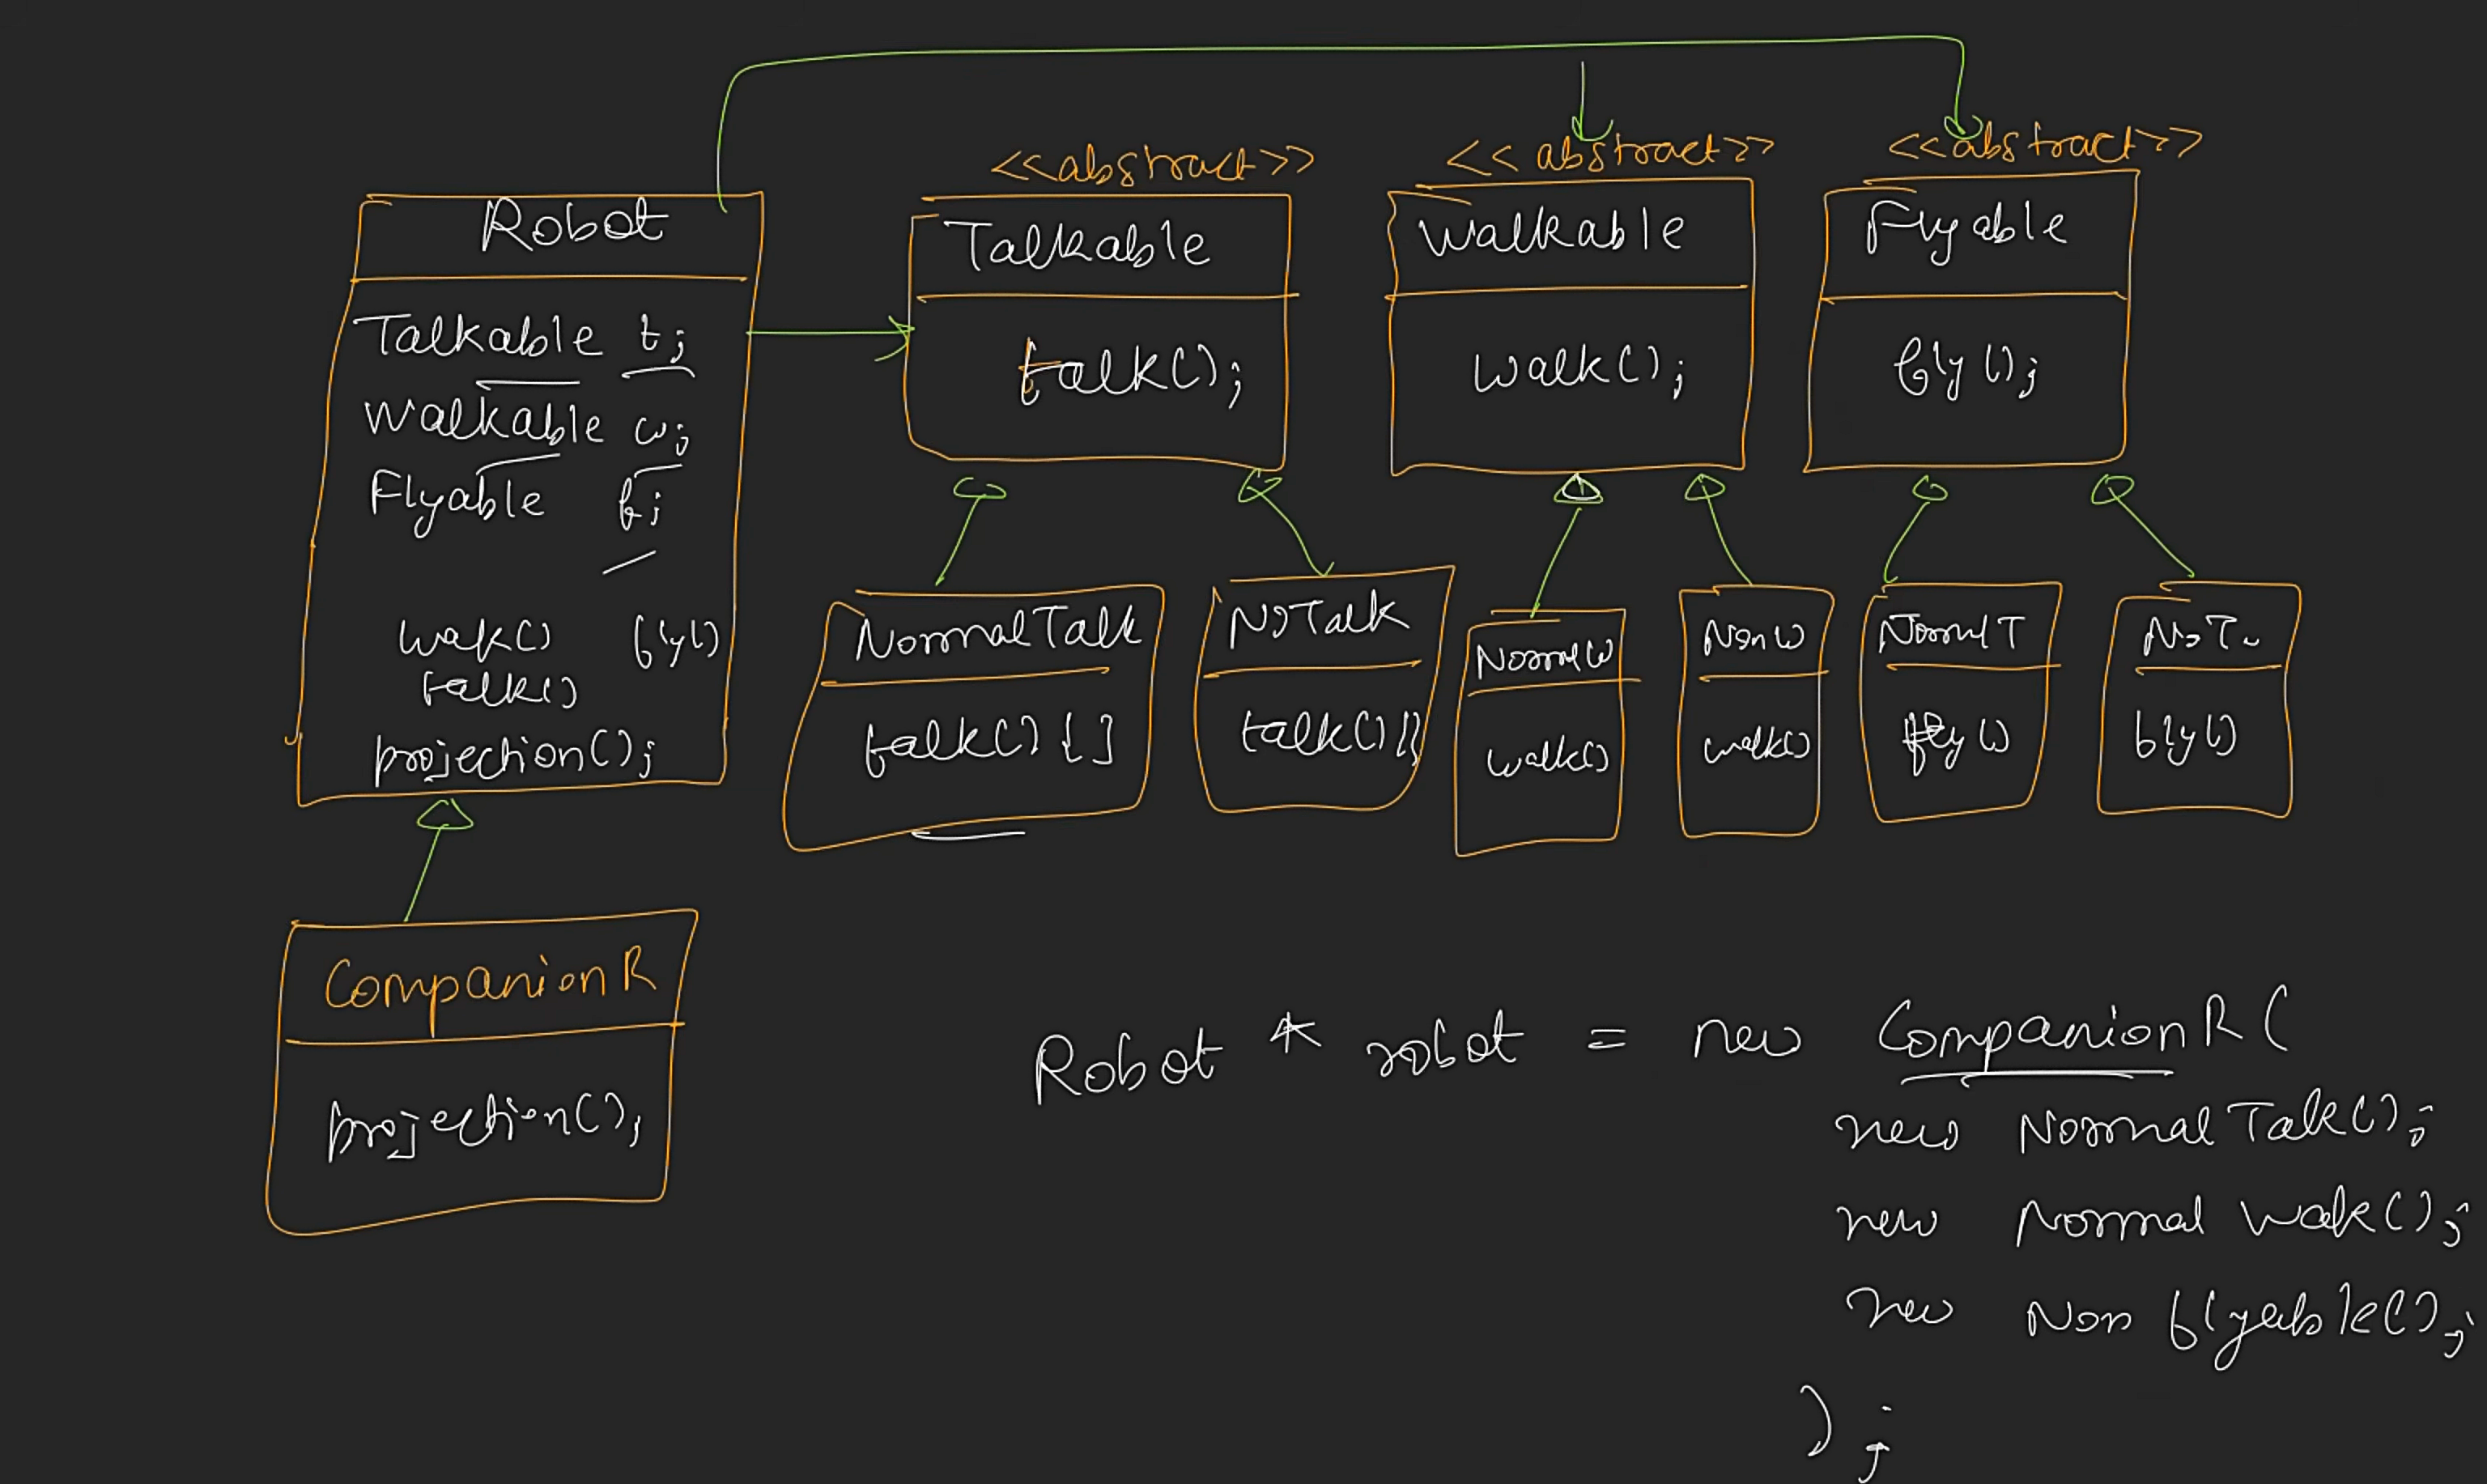 <<abstract>>
<<abstract>>
<<abstract>>
Robot
Talkable t;
Walkable w;
Flyable f;
walk() fly()
talk()
projection();
Talkable
talk();
Walkable
walk();
Flyable
fly();
NormalTalk
talk(){}
NoTalk
talk(){}
NormalW
walk()
NonW
walk()
NormalT
fly()
NoT
fly()
CompanionR
projection();
Robot * robot = new CompanionR(
new NormalTalk();
new Normal Walk();
new Non flyable();
);